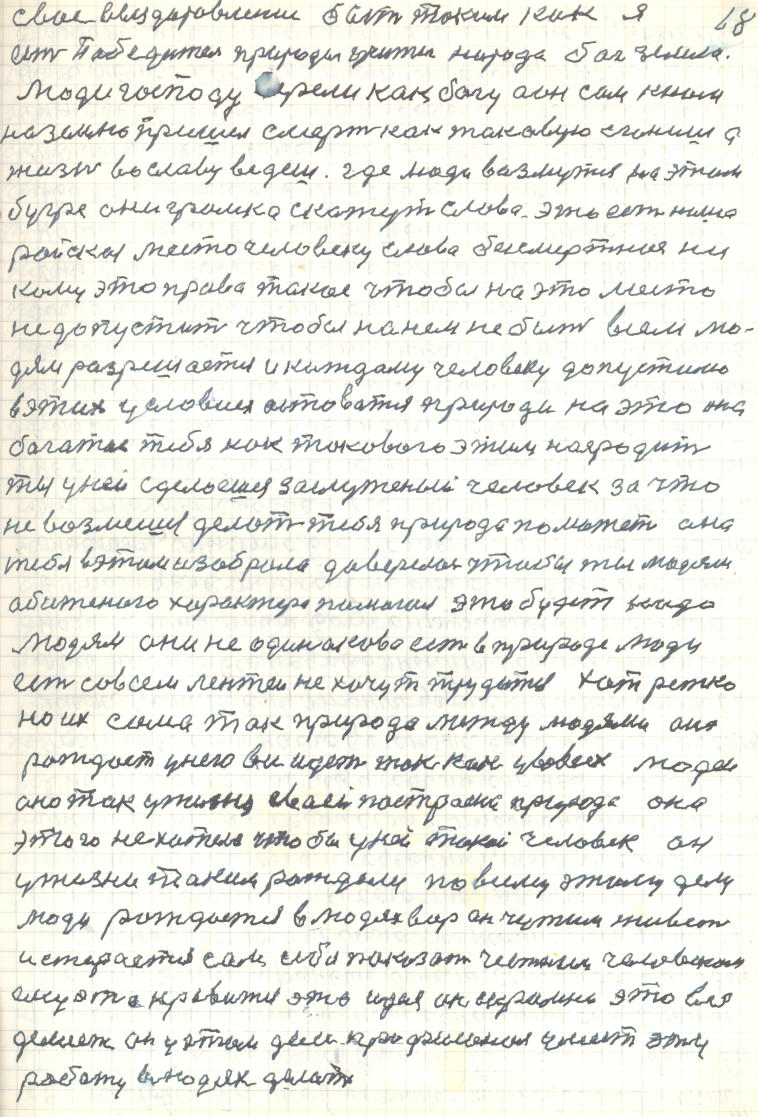 свое выздоровление быть таким как я 18
есть Победителя природы учителя народа бог земли.
Люди господу верели как богу а он сам к ним
на землю пришел смерть как таковую сгонить а
жизнь во славу ведеш. где люди возмутся на этом
бугре они громка скажут слова. это есть нима
райская место человеку слова бесмертная ни
кому это права такое чтобы на это место
не допустить чтобы на нем не быть всем лю-
дям разрешается и каждаму человеку допустимо
в этих условиях оставатся природи на это она
богатая тебя как такового этим наградить
ты у ней сделаешся заслуженый человек за что
не возмешся делать тебя природа поможет она
тебя в этом изобрала даверила чтобы ты людям
абиженого характера помогал это будет надо
людям они не одинакова есть в природе люди
есть совсем лентеи не хочут трудится хоть ретко
но их сама так природа между людями она
рождает у него выидет так как у всех людей
оно так у жизни своей построена природа она
этого не хотела чтобы у ней такой человек он
у жизни таким рождали по всему этому делу
люди рождается в людях вор он чужим живет
и старается сам себя показать честным человеком
ему это нравится эта идея он скромно это все
делает он у этом деле професионал умеет эту
работу в людях делать